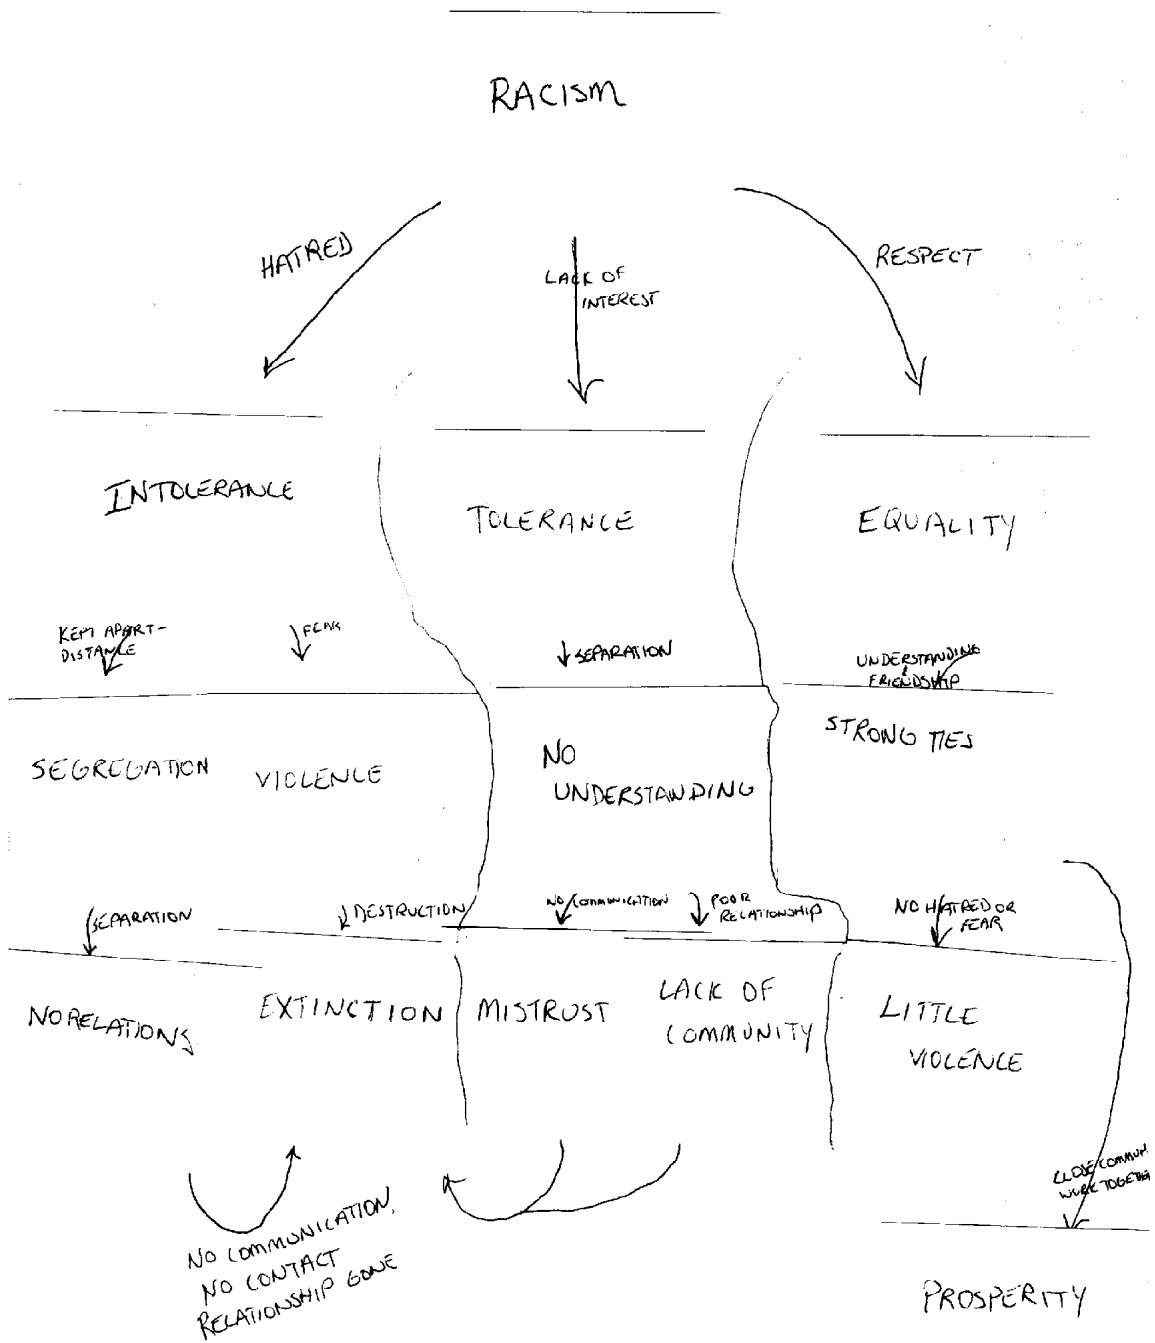 RACISM
HATRED
LACK OF
INTEREST
RESPECT
INTOLERANCE
TOLERANCE
EQUALITY
KEPT APART-
DISTANCE
FEAR
SEPARATION
UNDERSTANDING
&
FRIENDSHIP
SEGREGATION
VIOLENCE
NO
UNDERSTANDING
STRONG TIES
SEPARATION
DESTRUCTION
NO COMMUNICATION
POOR
RELATIONSHIP
NO HATRED OR
FEAR
NO RELATIONS
EXTINCTION
MISTRUST
LACK OF
COMMUNITY
LITTLE
VIOLENCE
NO COMMUNICATION,
NO CONTACT
RELATIONSHIP GONE
CLOSE COMMUN
WORK TOGETHE
PROSPERITY